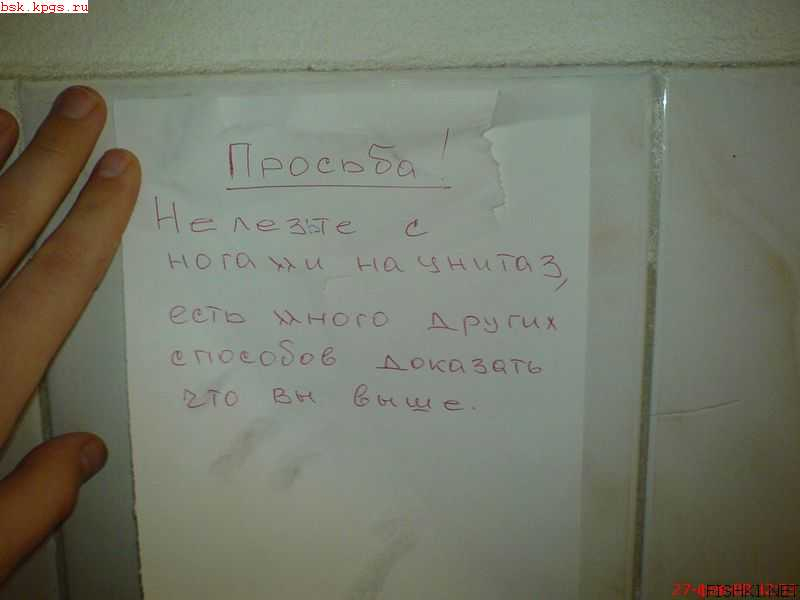 bsk.kpgs.ru
Просьба!
Не лезьте с
ногами на унитаз,
есть много других
способов доказать
что вы выше.
FISHKI.NET